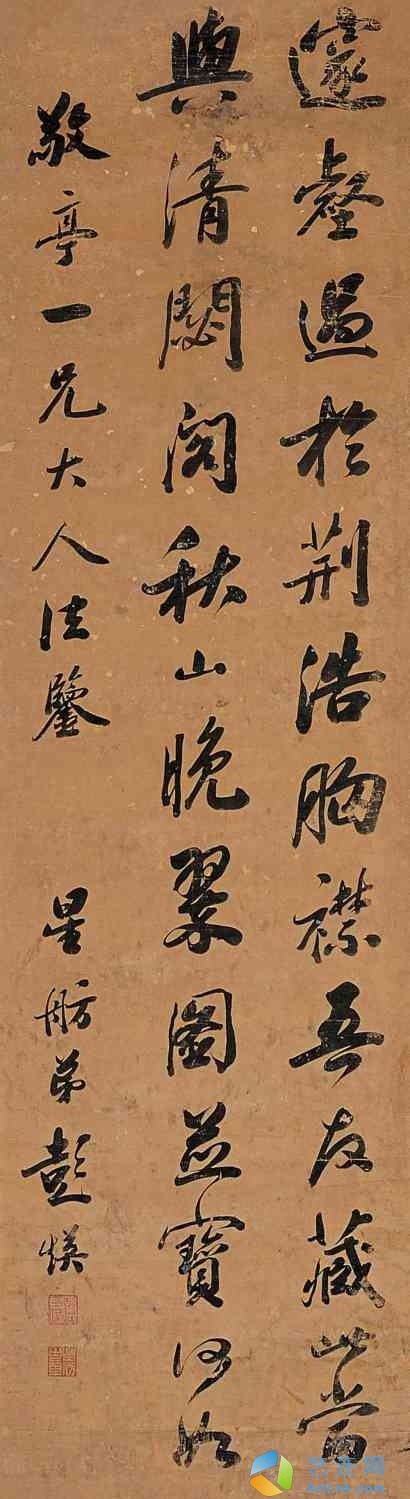 邃壑過於荆浩胸襟吾友藏此當
與清閟閣秋山晚翠圖並寶何如
敬亭一兄大人法鑒 星舫弟彭